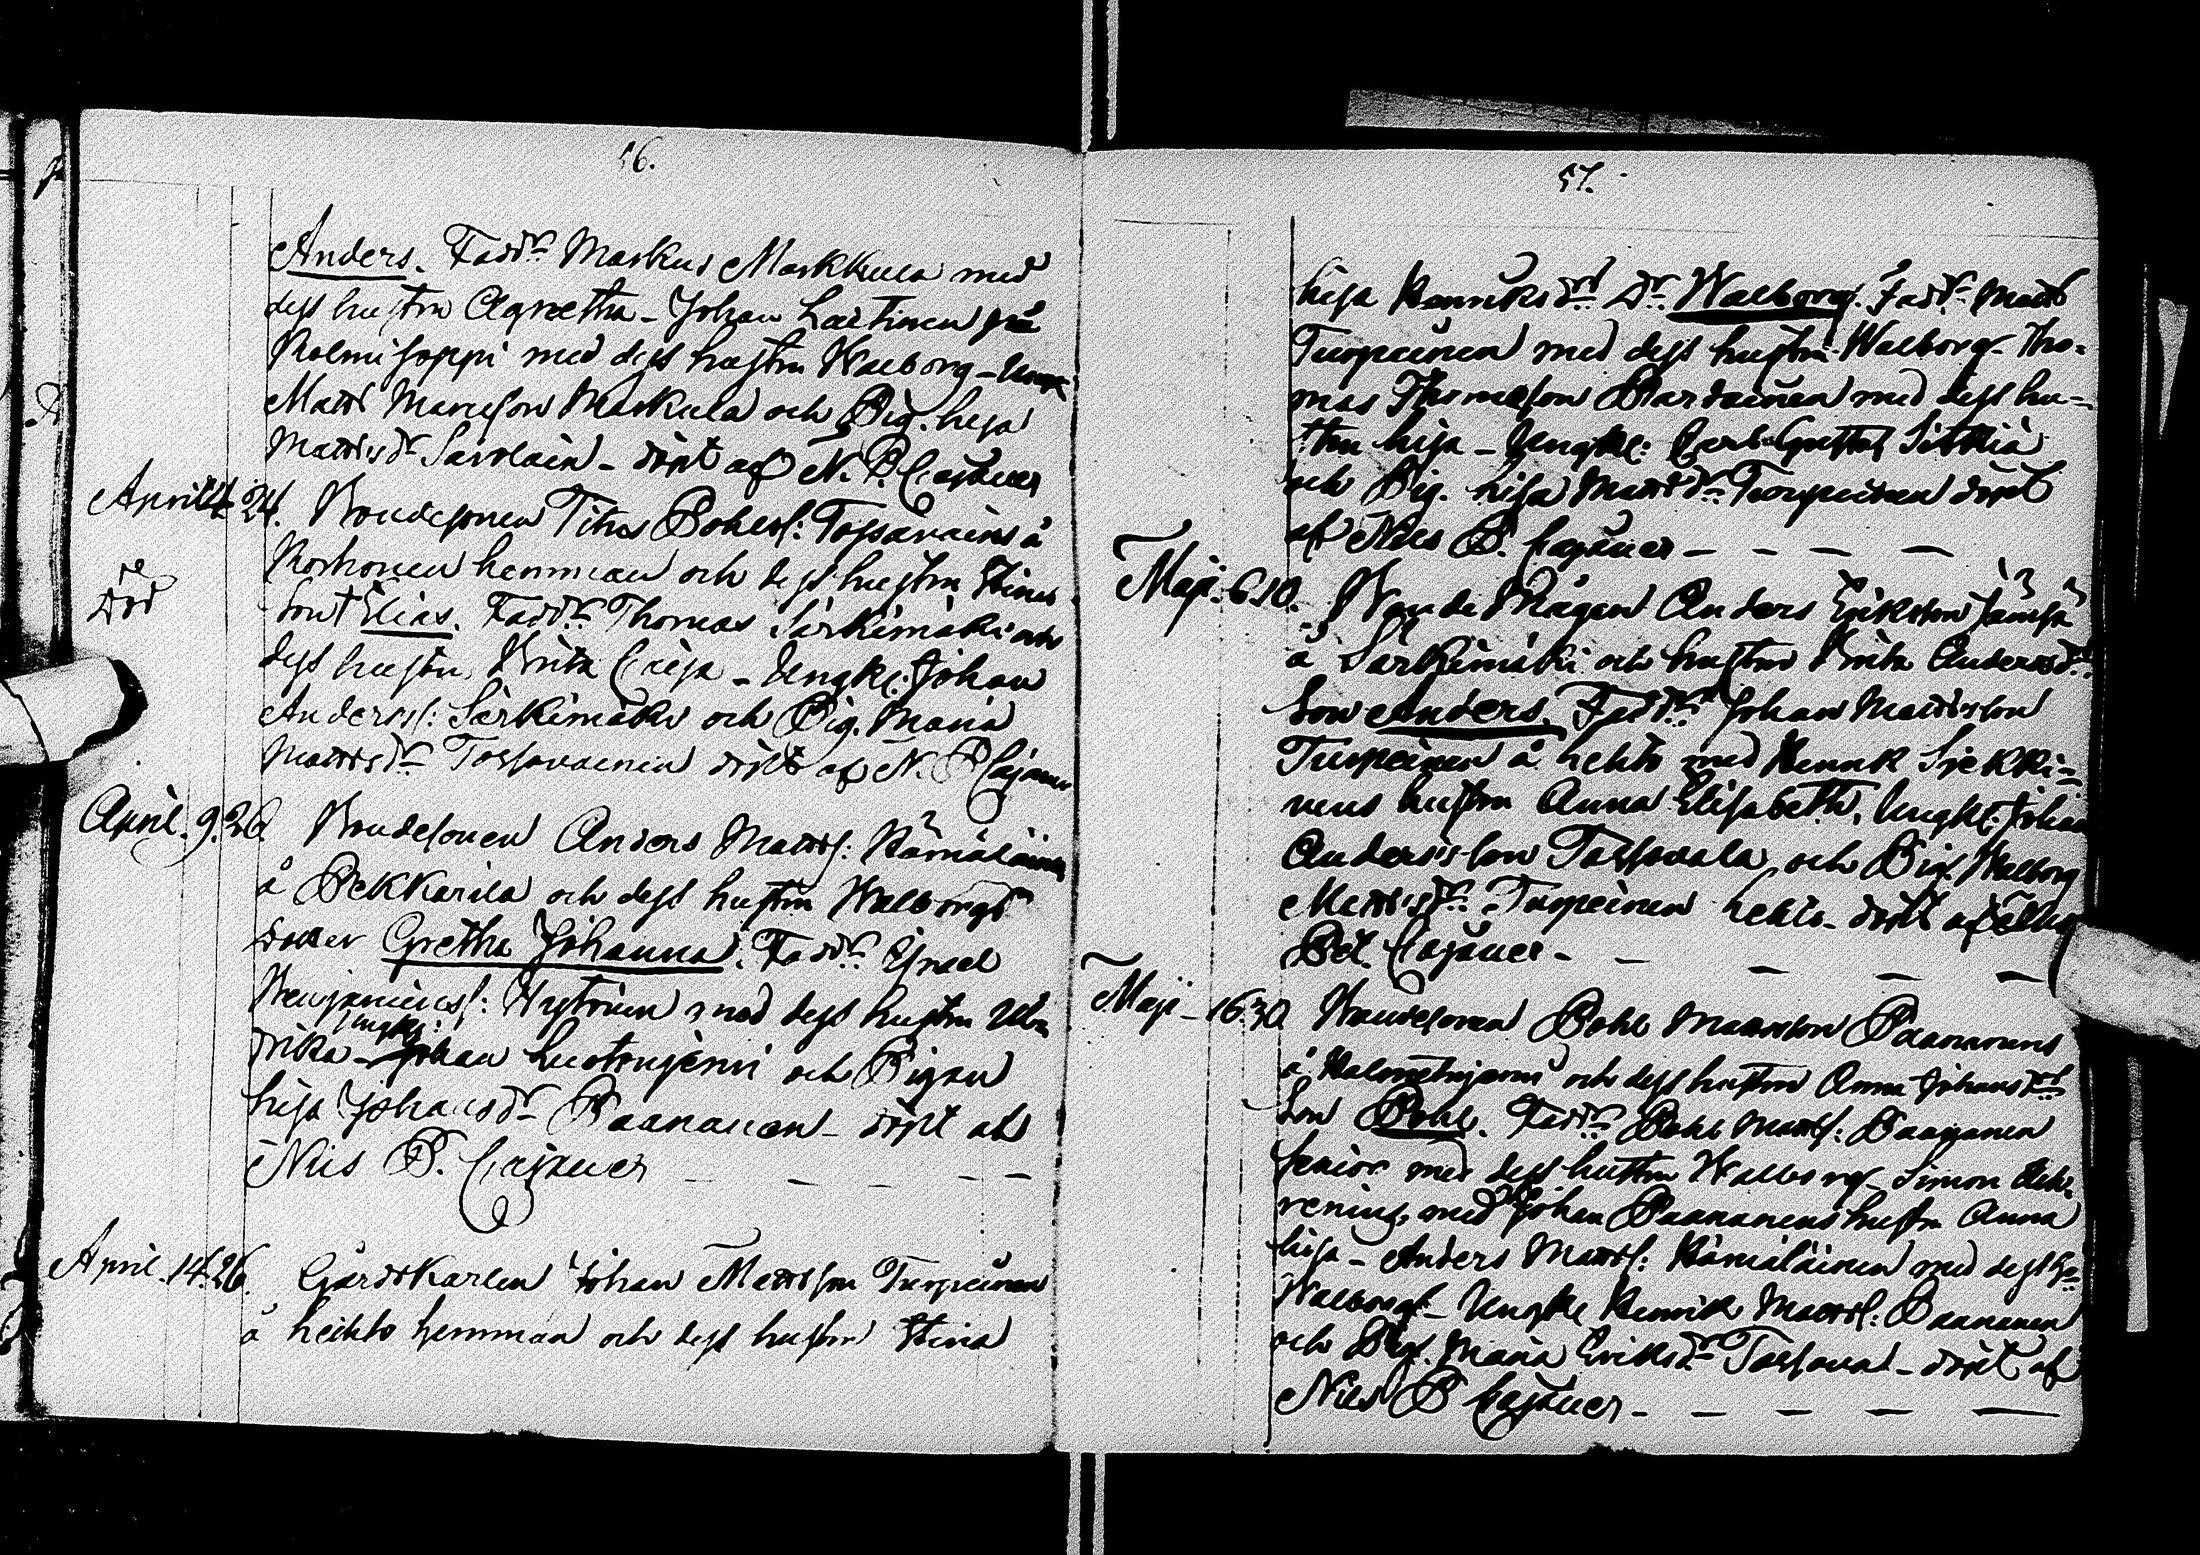 56.
Anders. Fadd:r Markus Markkula med
dess hustru Agnetha - Johan Lactinen på
Kolmisoppi med dess hustru Walborg - Ungk.
Matts Mattsson Markula och Pig. Lisa
Mattsd:r Savolain - döpt af N. P. Cajanus
April 24. Bondesonen Titus Pohlss: Tossavains å
Korhonen hemman och dess hustru Stinas
död
Son Elias. Fadd:r Thomas Särkimäki och
dess hustru Brita Caisa - Ungk: Johan
Anderss: Särkimäki och Pig. Maria
Mattsd:r Tossavainen döpt af N. P. Cajanus
April. 9. 26. Bondesonen Anders Mattss: Hämäläinens
å Pekkarila och dess hustru Walborgs
dotter Gretha Johanna. Fadd:r Israel
Benjaminss: Hytönen med dess hustru Ulri
drika - Ungk: Johan Luotosjervi och Pigan
Lisa Johansd:r Paananen - döpt af
Nils P. Cajanus
April. 14. 26. Gårdskarlen Johan Mattsson Turpeinen
å Leikto hemman och dess hustru Stina
57.
Lisa Henriksd:r D:r Walborg. Fadd:r Matts
Turpeinen med dess hustru Walborg - Tho=
mas Thomasson Partainen med dess hu=
stru Lisa - Ungk: Carl Gustaf Sittkiä
och Pig. Lisa Mattsd:r Turpeinen döpt
af Nils P. Cajanus
Maji. 6. 10. Bonde Mågen Anders Eriksson Jämsä
å Särkimäki och hustru Brita Andersd:rs
Son Anders. Fadd:r Johan Mattsson
Turpeinen å Lehto med Henrik Siekki=
nens hustru Anna Elisabeth, Ungk: Johan
Andersson Tossavala, och Pig. Walborg
Mattsd:r Turpeinen Lehto - döpt af
Pet. Cajanus
Maji - 16. 30. Bondesonen Pohl Mattsson Paananens
å och dess hustru Anna Johansd:rs
Son Pohl. Fadd:r Pohl Mattss: Paananen
senior med dess hustru Walborg - Simon
med Johan Paananens hustru Anna
Lisa - Anders Mattss: Hämäläinen med dess hu
Walborg - Ungk: Henrik Mattss: Paananen
och Pig. Maria Eriksd:r Tossava - döpt af
Nils P Cajanus